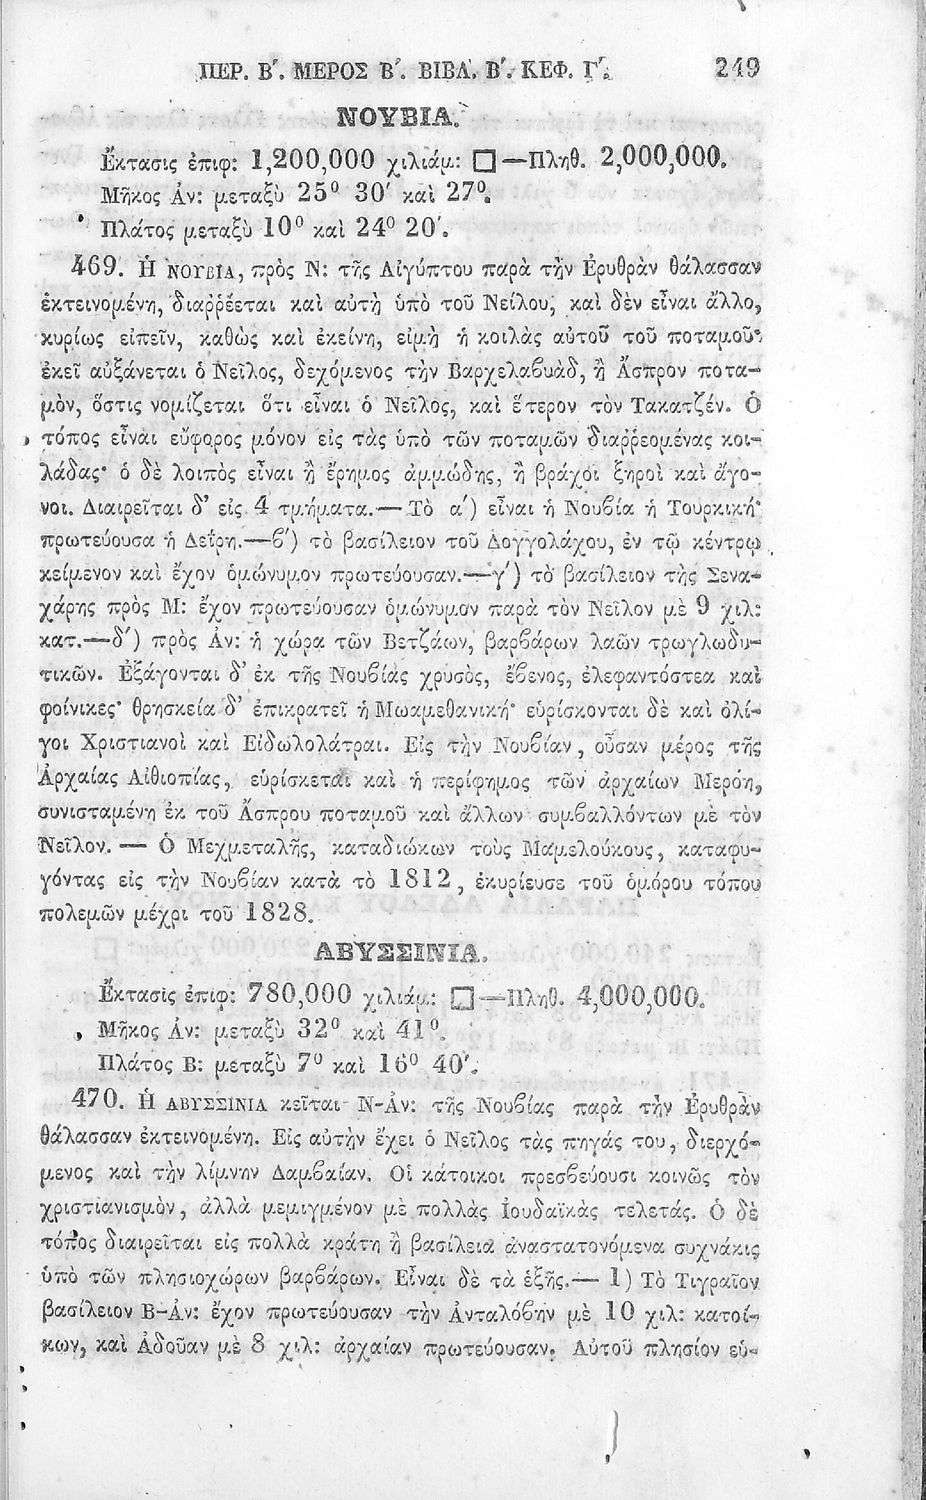 ΠΕΡ. Β΄. ΜΕΡΟΣ Β΄. ΒΙΒΛ. Β΄. ΚΕΦ. Γ΄. 249
ΝΟΥΒΙΑ.
Ἔκτασις ἐπιφ: 1,200,000 χιλιάμ: □—Πληθ. 2,000,000.
Μῆκος Ἀν: μεταξὺ 25⁰ 30′ καὶ 27⁰.
Πλάτος μεταξὺ 10⁰ καὶ 24⁰ 20′.
469. Ἡ ΝΟΥΒΙΑ, πρὸς Ν: τῆς Αἰγύπτου παρὰ τὴν Ἐρυθρὰν θάλασσαν
ἐκτεινομένη, διαῤῥέεται καὶ αὐτὴ ὑπὸ τοῦ Νείλου, καὶ δὲν εἶναι ἄλλο,
κυρίως εἰπεῖν, καθὼς καὶ ἐκείνη, εἰμὴ ἡ κοιλὰς αὐτοῦ τοῦ ποταμοῦ·
ἐκεῖ αὐξάνεται ὁ Νεῖλος, δεχόμενος τὴν Βαρχελαβυὰδ, ἢ Ἄσπρον ποτα-
μὸν, ὅστις νομίζεται ὅτι εἶναι ὁ Νεῖλος, καὶ ἕτερον τὸν Τακατζέν. Ὁ
τόπος εἶναι εὔφορος μόνον εἰς τὰς ὑπὸ τῶν ποταμῶν διαῤῥεομένας κοι-
λάδας· ὁ δὲ λοιπὸς εἶναι ἢ ἔρημος ἀμμώδης, ἢ βράχοι ξηροὶ καὶ ἄγο-
νοι. Διαιρεῖται δ᾽ εἰς 4 τμήματα.— Τὸ α΄) εἶναι ἡ Νουβία ἡ Τουρκική·
πρωτεύουσα ἡ Δεΐρη.—β΄) τὸ βασίλειον τοῦ Δογγολάχου, ἐν τῷ κέντρῳ
κείμενον καὶ ἔχον ὁμώνυμον πρωτεύουσαν.—γ΄) τὸ βασίλειον τῆς Σενα-
χάρης πρὸς Μ: ἔχον πρωτεύουσαν ὁμώνυμον παρὰ τὸν Νεῖλον μὲ 9 χιλ:
κατ.—δ΄) πρὸς Ἀν: ἡ χώρα τῶν Βετζάων, βαρβάρων λαῶν τρωγλωδυ-
τικῶν. Ἐξάγονται δ᾽ ἐκ τῆς Νουβίας χρυσὸς, ἔβενος, ἐλεφαντόστεα καὶ
φοίνικες· θρησκεία δ᾽ ἐπικρατεῖ ἡ Μωαμεθανική· εὑρίσκονται δὲ καὶ ὀλί-
γοι Χριστιανοὶ καὶ Εἰδωλολάτραι. Εἰς τὴν Νουβίαν, οὖσαν μέρος τῆς
Ἀρχαίας Αἰθιοπίας, εὑρίσκεται καὶ ἡ περίφημος τῶν ἀρχαίων Μερόη,
συνισταμένη ἐκ τοῦ Ἄσπρου ποταμοῦ καὶ ἄλλων συμβαλλόντων μὲ τὸν
Νεῖλον. — Ὁ Μεχμεταλῆς, καταδιώκων τοὺς Μαμελούκους, καταφυ-
γόντας εἰς τὴν Νουβίαν κατὰ τὸ 1812, ἐκυρίευσε τοῦ ὁμόρου τόπου
πολεμῶν μέχρι τοῦ 1828.
ΑΒΥΣΣΙΝΙΑ.
Ἔκτασὶς ἐπιφ: 780,000 χιλιάμ: □—Πληθ. 4,000,000.
Μῆκος Ἀν: μεταξὺ 32⁰ καὶ 41⁰.
Πλάτος Β: μεταξὺ 7⁰ καὶ 16⁰ 40′.
470. Ἡ ΑΒΥΣΣΙΝΙΑ κεῖται Ν-Ἀν: τῆς Νουβίας παρὰ τὴν Ἐρυθρὰν
θάλασσαν ἐκτεινομένη. Εἰς αὐτὴν ἔχει ὁ Νεῖλος τὰς πηγάς του, διερχό-
μενος καὶ τὴν λίμνην Δαμβαίαν. Οἱ κάτοικοι πρεσβεύουσι κοινῶς τὸν
χριστιανισμὸν, ἀλλὰ μεμιγμένον μὲ πολλὰς Ἰουδαϊκὰς τελετάς. Ὁ δὲ
τόπος διαιρεῖται εἰς πολλὰ κράτη ἢ βασίλεια ἀναστατονόμενα συχνάκις
ὑπὸ τῶν πλησιοχώρων βαρβάρων. Εἶναι δὲ τὰ ἑξῆς.— 1) Τὸ Τιγραῖον
βασίλειον Β-Ἀν: ἔχον πρωτεύουσαν τὴν Ἀνταλόβην μὲ 10 χιλ: κατοί-
κων, καὶ Ἀδοῦαν μὲ 8 χιλ: ἀρχαίαν πρωτεύουσαν. Αὐτοῦ πλησίον εὑ-